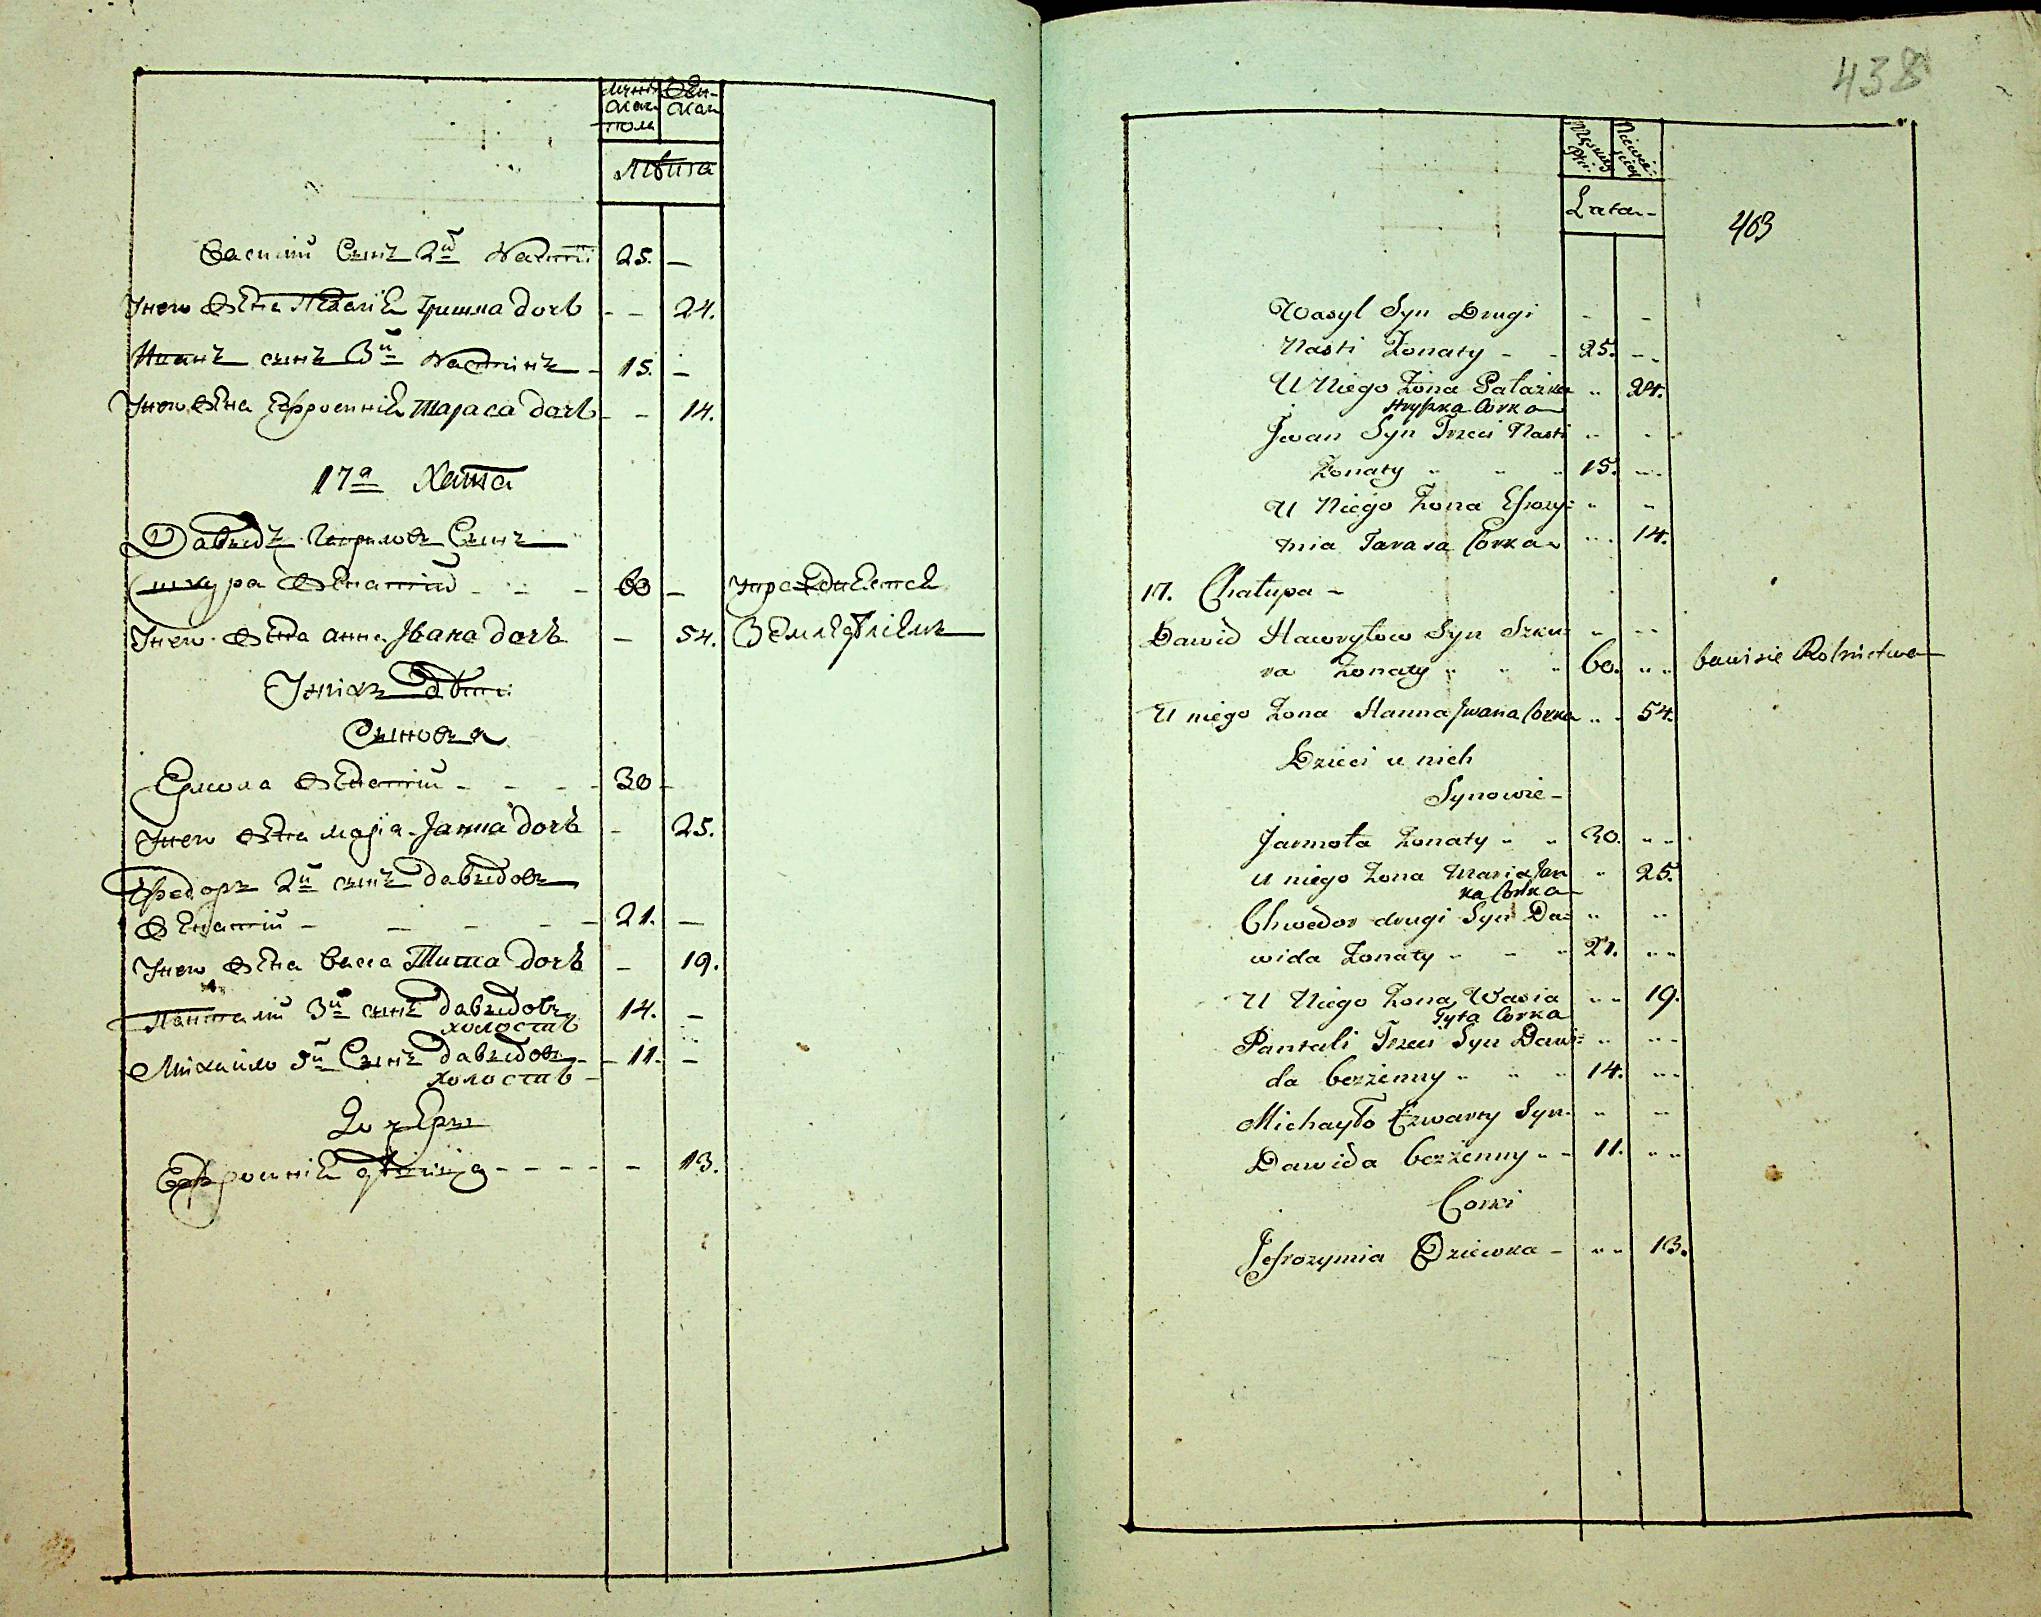 Лѣта
Василий Сынъ 2й Настіи 25. —
У него Жена Пелагія Гришка дочь - - 24.
Иванъ сынъ 3й Настинъ - 15. —
У него Жена Ефросинія Тараса дочь - - 14.
17я Хата
Давыдъ Гавриловъ Сынъ
Шкура Женатий - - - 60 — Упражняется
У него Жена Анна Ивана дочь — 54. Земледѣліемъ
У нихъ дѣти
Сыновья
Ермола Женатий - - - - 30 -
У него Жена Марія Янка дочь - 25.
Федоръ 2й сынъ Давыдовъ
Женатий - - - - - 21. —
У него Жена Васса Тита дочь - 19.
Панталий 3й сынъ Давыдовъ 14. —
холостий
Михайло 5й Сынъ Давыдовъ - - 11. —
холостий -
Дочери
Ефросинія дѣвица - - - - - 13.
438
Lata -
403
Wasyl Syn Drugi - -
Nasti Żonaty - - 25. - -
U Niego Żona Pałażka " 24.
Hryszka Corka
Jwan Syn Trzeci Nasti " -
Żonaty " " " 15. - -
U Niego Żona Efrozy= " "
nia Tarasa Corka " " 14.
17. Chałupa -
Dawid Hawryłow Syn Szku= " - -
ra Żonaty " " " 60. " " bawisie Rolnictwem
U niego Żona Hanna Jwana Corka " " 54.
Dzieci u nich
Synowie -
Jarmoła Żonaty " " 30. " "
U niego Żona Maria Jan " 25.
ka Corka
Chwedor drugi Syn Da= " "
wida Żonaty " - " 21. " "
U Niego Żona Wasia " " 19.
Tyta Corka
Pantali Trzeci Syn Dawi= " - -
da bezżenny " " " 14. " "
Michayło Czwarty Syn " "
Dawida bezżenny " " 11. " "
Corki
Jefrozymia Dziewka - " " 13.